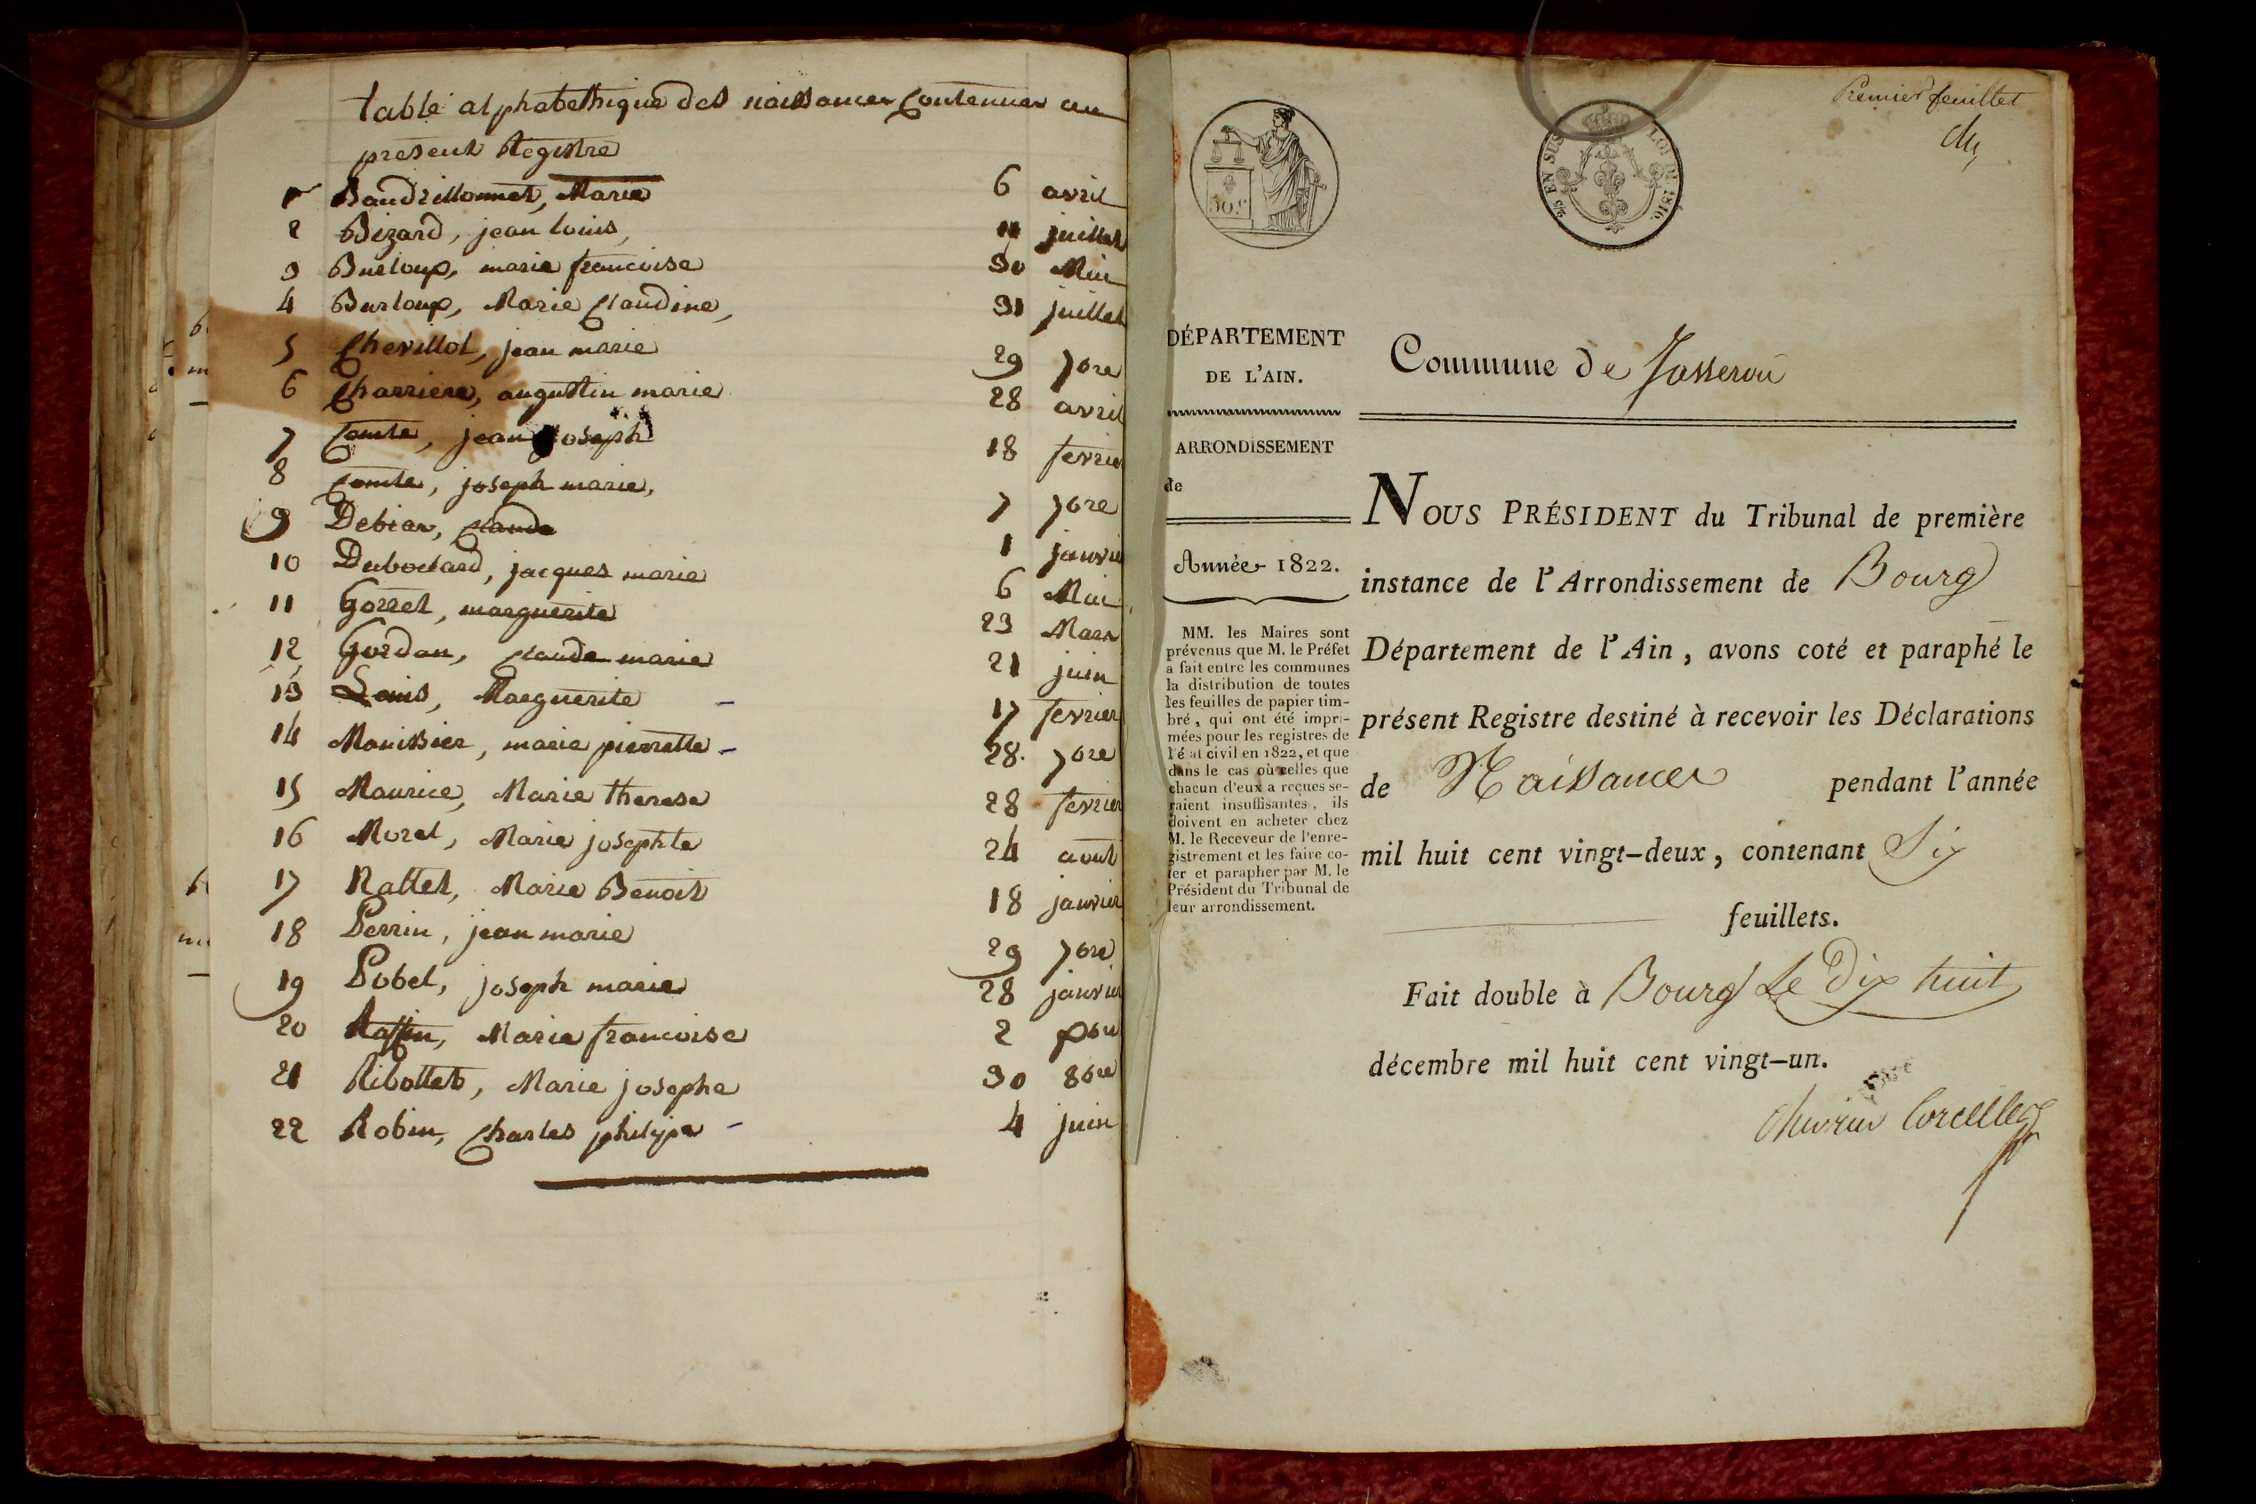 table alphabethique des naissances Contenues au
present Registre
1 Baudrillonnet, Marie 6 avril
2 Bizard, jean louis, 11 juillet
3 Burloup, marie francoise 30 Mai
4 Burloup, Marie Claudine, 31 juillet
5 Chevillot, jean marie 29 7bre
6 Charriere, augustin marie 28 avril
7 Comte, jean joseph 18 fevrier
8 Comte, joseph marie, 7 7bre
9 Debian, Claude 1 janvier
10 Dubochard, jacques marie 6 Mai
11 Gorret, marguerite 23 Mars
12 Gordan, Claude marie 21 juin
13 Louis, Marguerite 17 fevrier
14 Manissier, marie pierrette 28 7bre
15 Maurice, Marie therese 28 fevrier
16 Morel, Marie josephte 24 aout
17 Nallet, Marie Benoit 18 janvier
18 Perrin, jean marie 29 7bre
19 Pobel, joseph marie 28 janvier
20 Raffin, Marie francoise 2
21 Ribollet, Marie josephe 30 8bre
22 Robin, Charles philipe 4 juin
Premier feuillet
50 C.
LOI DE 1816.
EN SUS
DÉPARTEMENT
DE L'AIN.
ARRONDISSEMENT
de
Année 1822.
MM. les Maires sont
prévenus que M. le Préfet
a fait entre les communes
la distribution de toutes
les feuilles de papier tim-
bré, qui ont été impri-
mées pour les registres de
l'état civil en 1822, et que
dans le cas où celles que
chacun d'eux a reçues se-
raient insuffisantes, ils
doivent en acheter chez
M. le Receveur de l'enre-
gistrement et les faire co-
ter et parapher par M. le
Président du Tribunal de
leur arrondissement.
Commune de Jasseron
NOUS PRÉSIDENT du Tribunal de première
instance de l'Arrondissement de Bourg
Département de l'Ain, avons coté et paraphé le
présent Registre destiné à recevoir les Déclarations
de Naissances pendant l'année
mil huit cent vingt-deux, contenant Six
feuillets.
Fait double à Bourg Le Dix huit
décembre mil huit cent vingt-un.